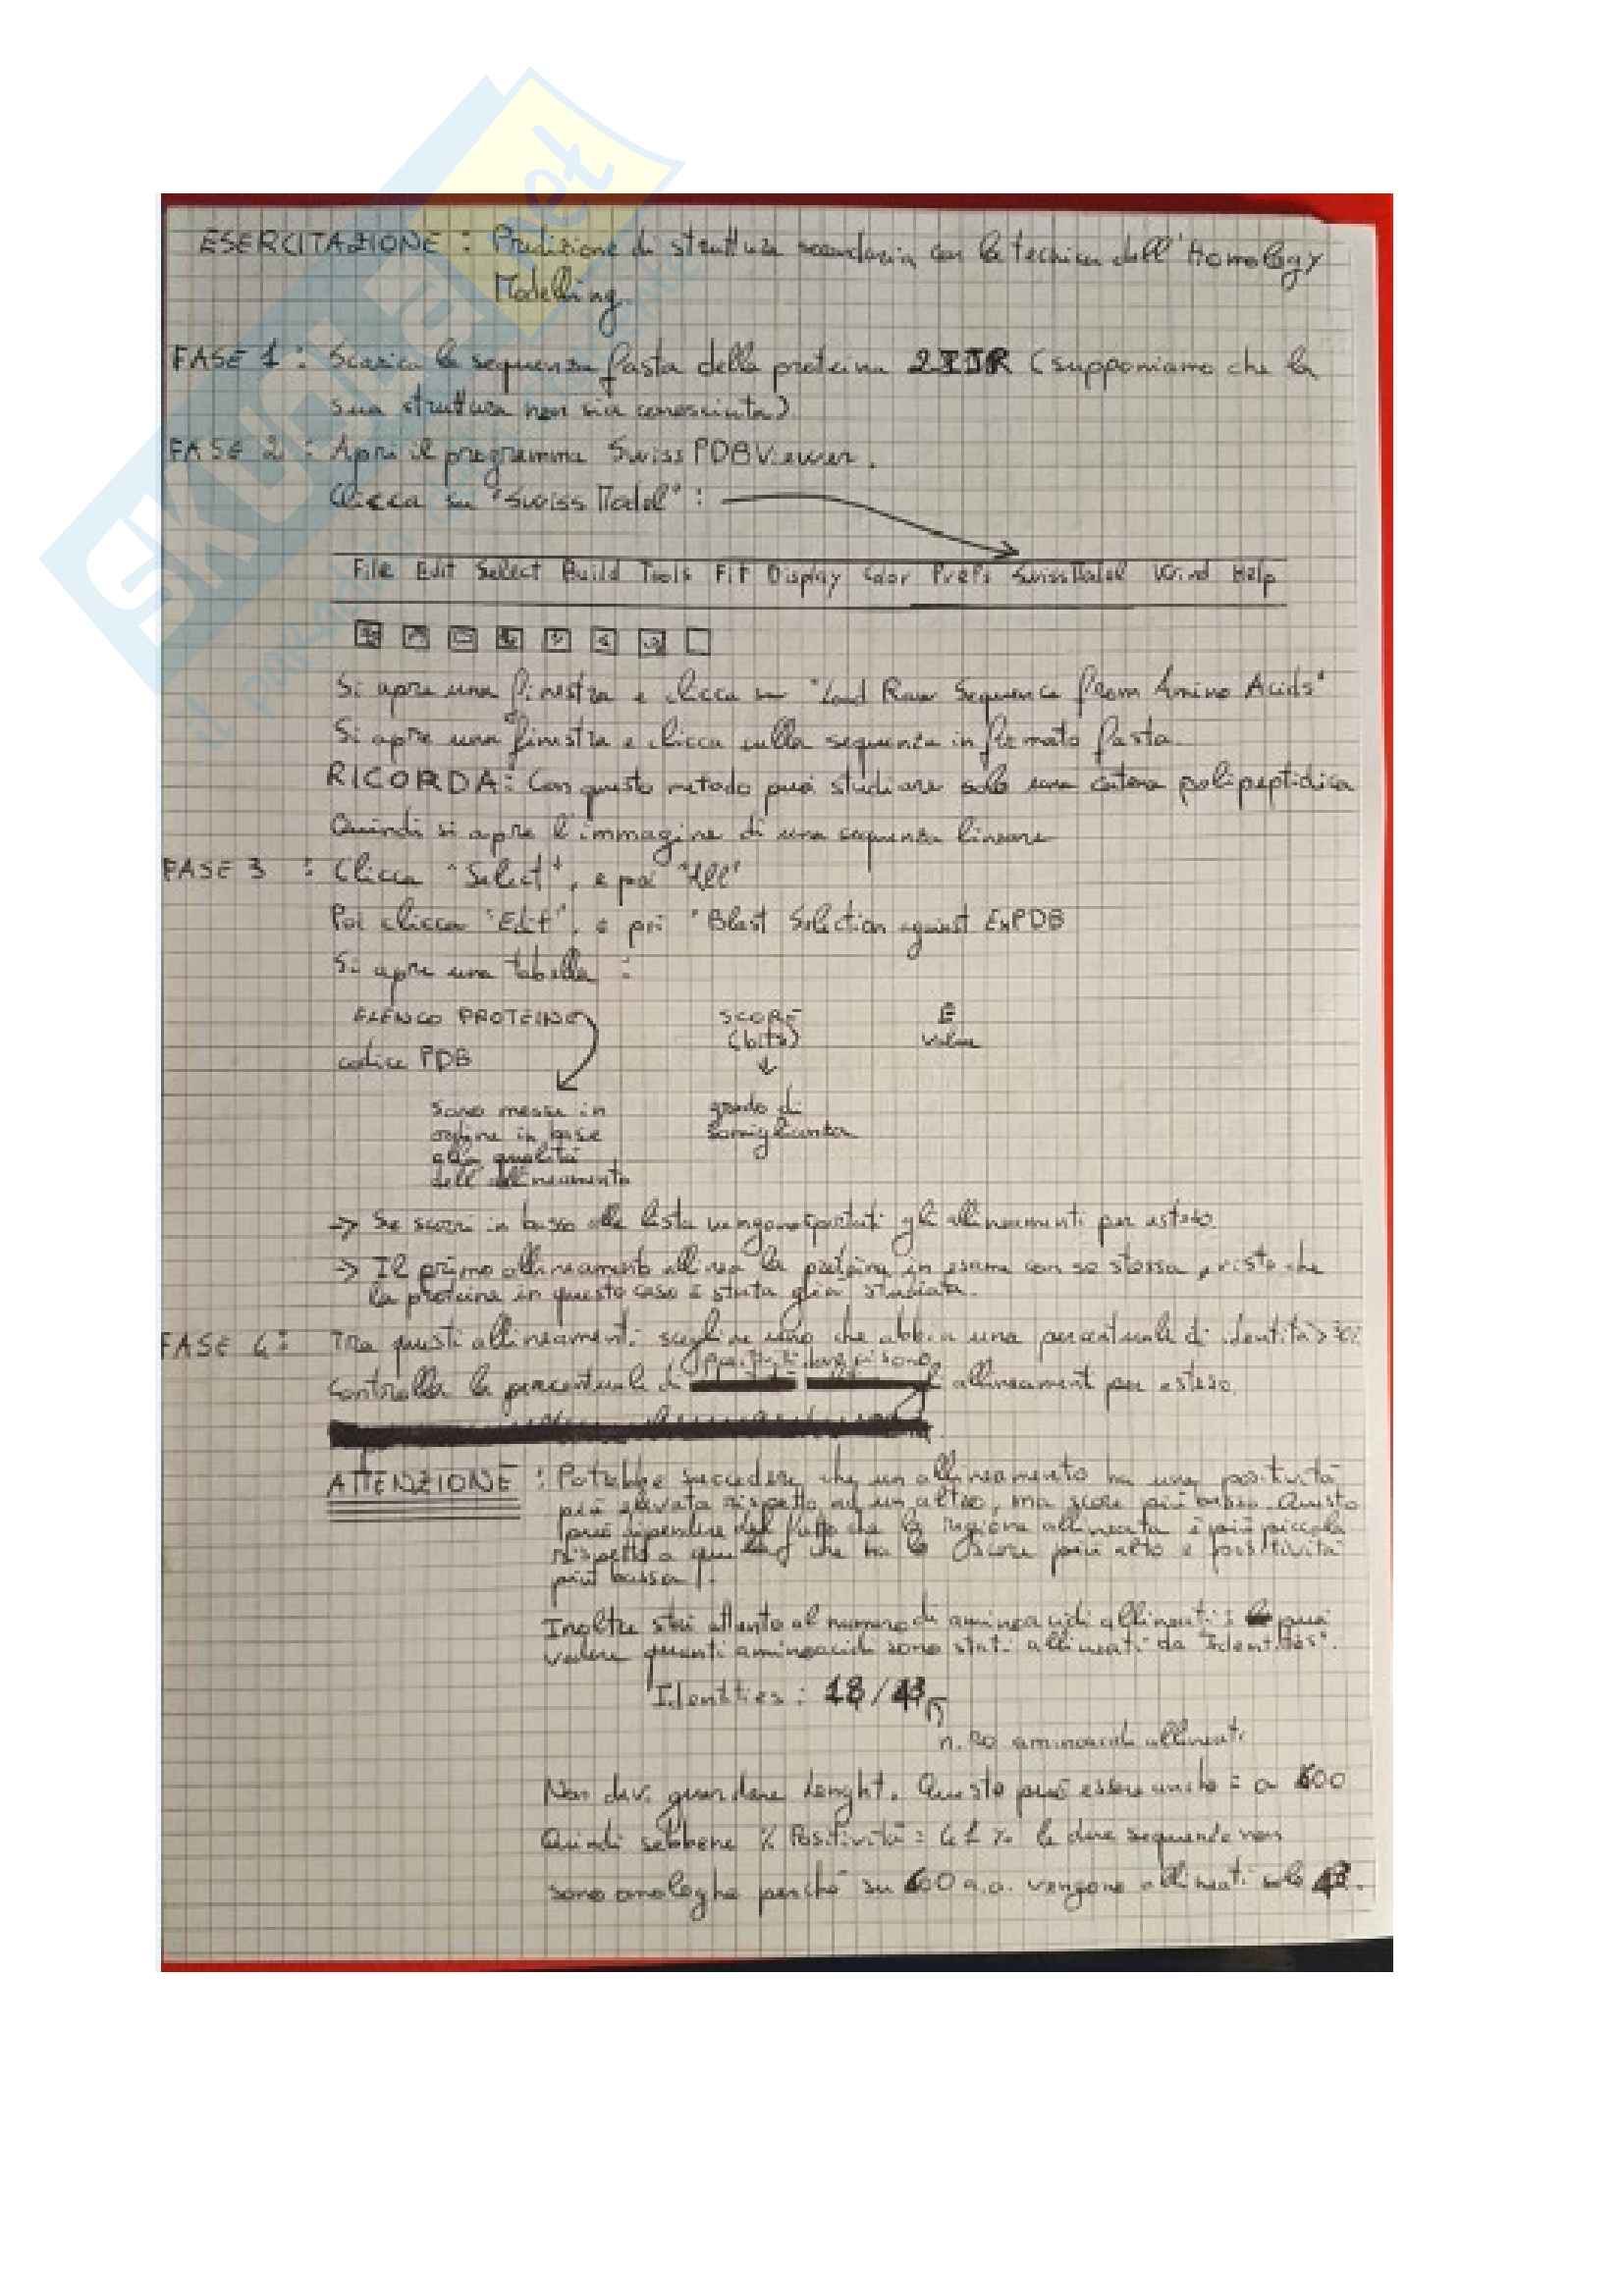 SKUOLA.net
ESERCITAZIONE : Predizione di struttura secondaria con la tecnica dell'Homology
Modelling.
FASE 1 : Scarica la sequenza fasta della proteina (supponiamo che la
sua struttura non sia conosciuta)
FASE 2 : Apri il programma Swiss PDBViewer.
Clicca su "Swiss Model" :
File Edit Select Build Tools Fit Display Color Prefs SwissModel Wind Help
Si apre una finestra e clicca su "Load Raw Sequence from Amino Acids"
Si apre una finestra e clicca sulla sequenza in formato fasta.
RICORDA: Con questo metodo puoi studiare solo una catena polipeptidica
Quindi si apre l'immagine di una sequenza lineare
FASE 3 : Clicca "Select", e poi "All"
Poi clicca "Edit", e poi "Blast Selection against ExPDB
Si apre una tabella :
ELENCO PROTEINE SCORE E
(bits) value
codice PDB
sono messe in grado di
ordine in base somiglianza
alla qualità
dell'allineamento
→ Se scorri in basso alla lista vengono riportati gli allineamenti per esteso.
→ Il primo allineamento allinea la proteina in esame con se stessa, visto che
la proteina in questo caso è stata già studiata.
FASE 4 : Tra questi allineamenti scegline uno che abbia una percentuale di identità >
Controlla la percentuale di allineamenti per esteso.
ATTENZIONE : Potrebbe succedere che un allineamento ha una positività
più elevata rispetto ad un altro, ma score più basso. Questo
può dipendere dal fatto che la regione allineata è più piccola
rispetto a che ha lo score più alto e positività
più bassa.
Inoltre stai attento al numero di aminoacidi allineati : puoi
vedere quanti aminoacidi sono stati allineati da "Identities".
Identities : 18/43
n.ro aminoacidi allineati
Non devi guardare lenght. Questo può essere anche = a 600
Quindi sebbene % Positività = 41 % le due sequenze non
sono omologhe perché su 600 a.a. vengono allineati solo 43.